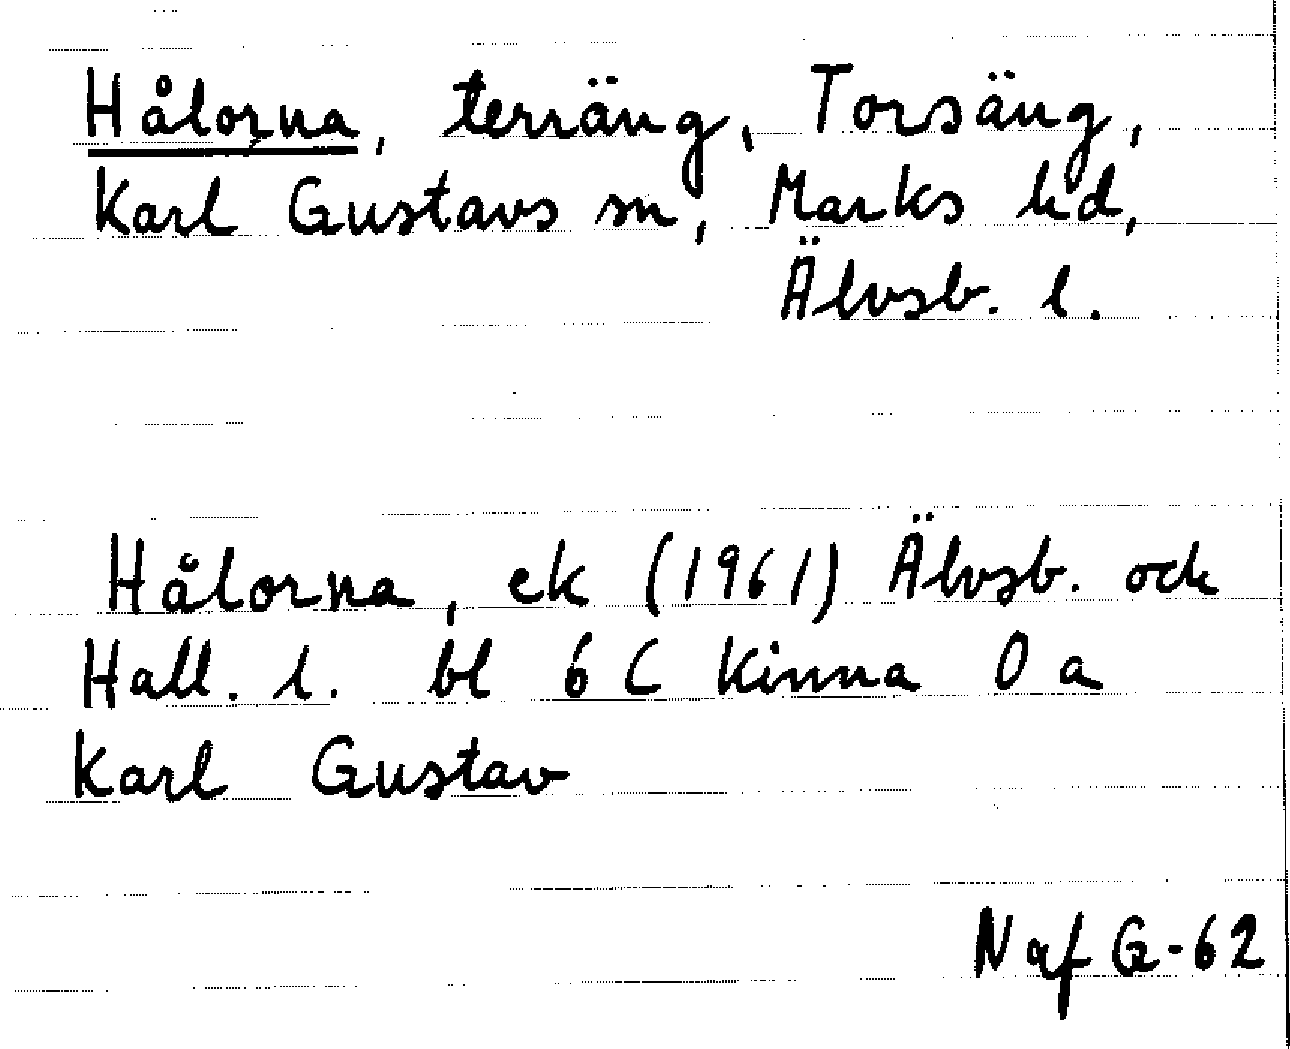 Hålorna, terräng, Torsäng,
Karl Gustavs sn, Marks hd,
Älvsb. l.
Hålorna, ek (1961) Älvsb. och
Hall. l. bl 6 C Kinna 0 a
Karl Gustav
Naf G-62